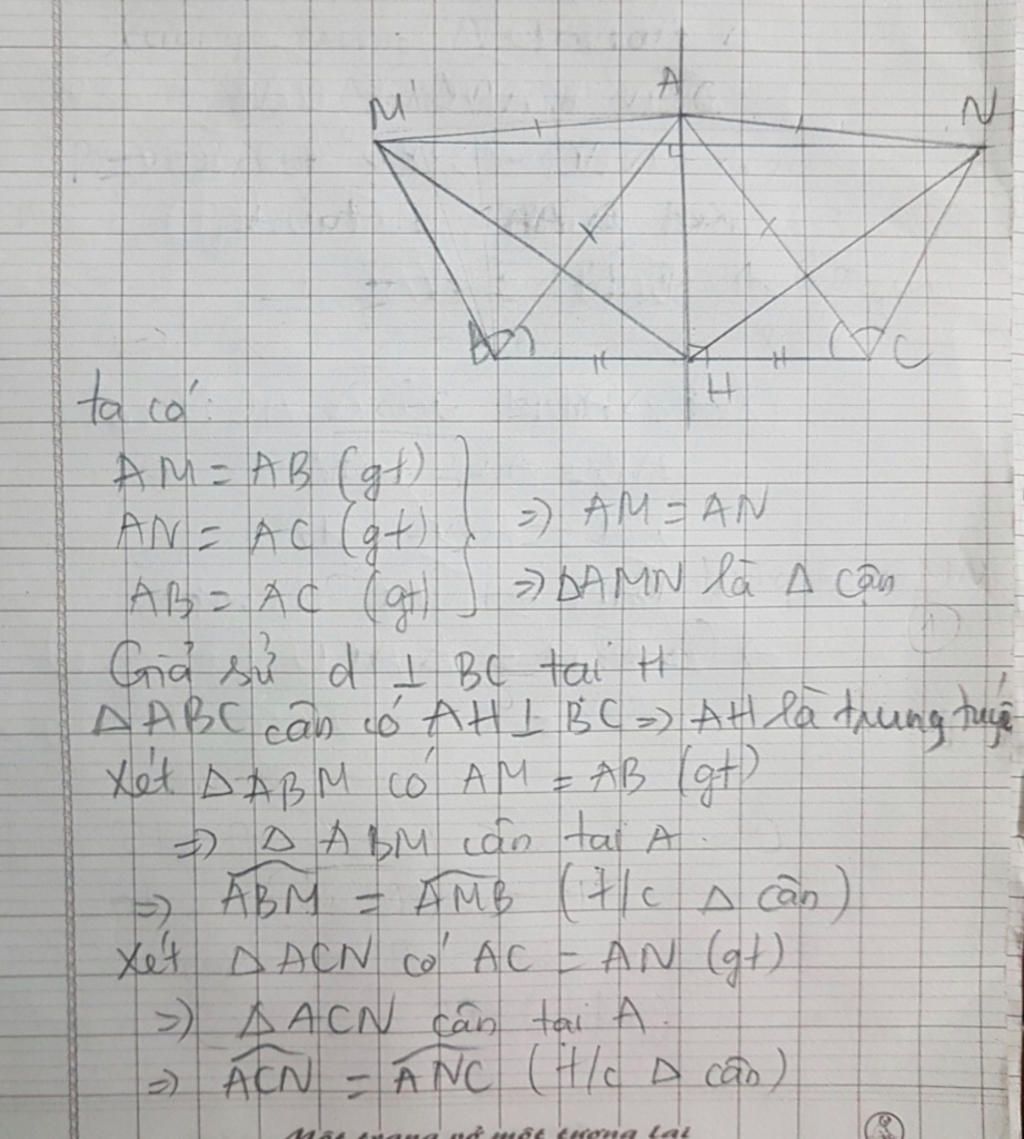 A
M
N
B
H
C
ta có:
AM = AB (gt)
AN = AC (gt) => AM = AN
AB = AC (gt) => ΔAMN là Δ cân
Giả sử d ⊥ BC tại H
ΔABC cân có AH ⊥ BC => AH là trung tuyế
Xét ΔABM có AM = AB (gt)
=> ΔABM cân tại A.
=> \widehat{ABM} = \widehat{AMB} (t/c Δ cân)
Xét ΔACN có AC = AN (gt)
=> ΔACN cân tại A.
=> \widehat{ACN} = \widehat{ANC} (t/c Δ cân)
Mỗi trang vở một tương lai